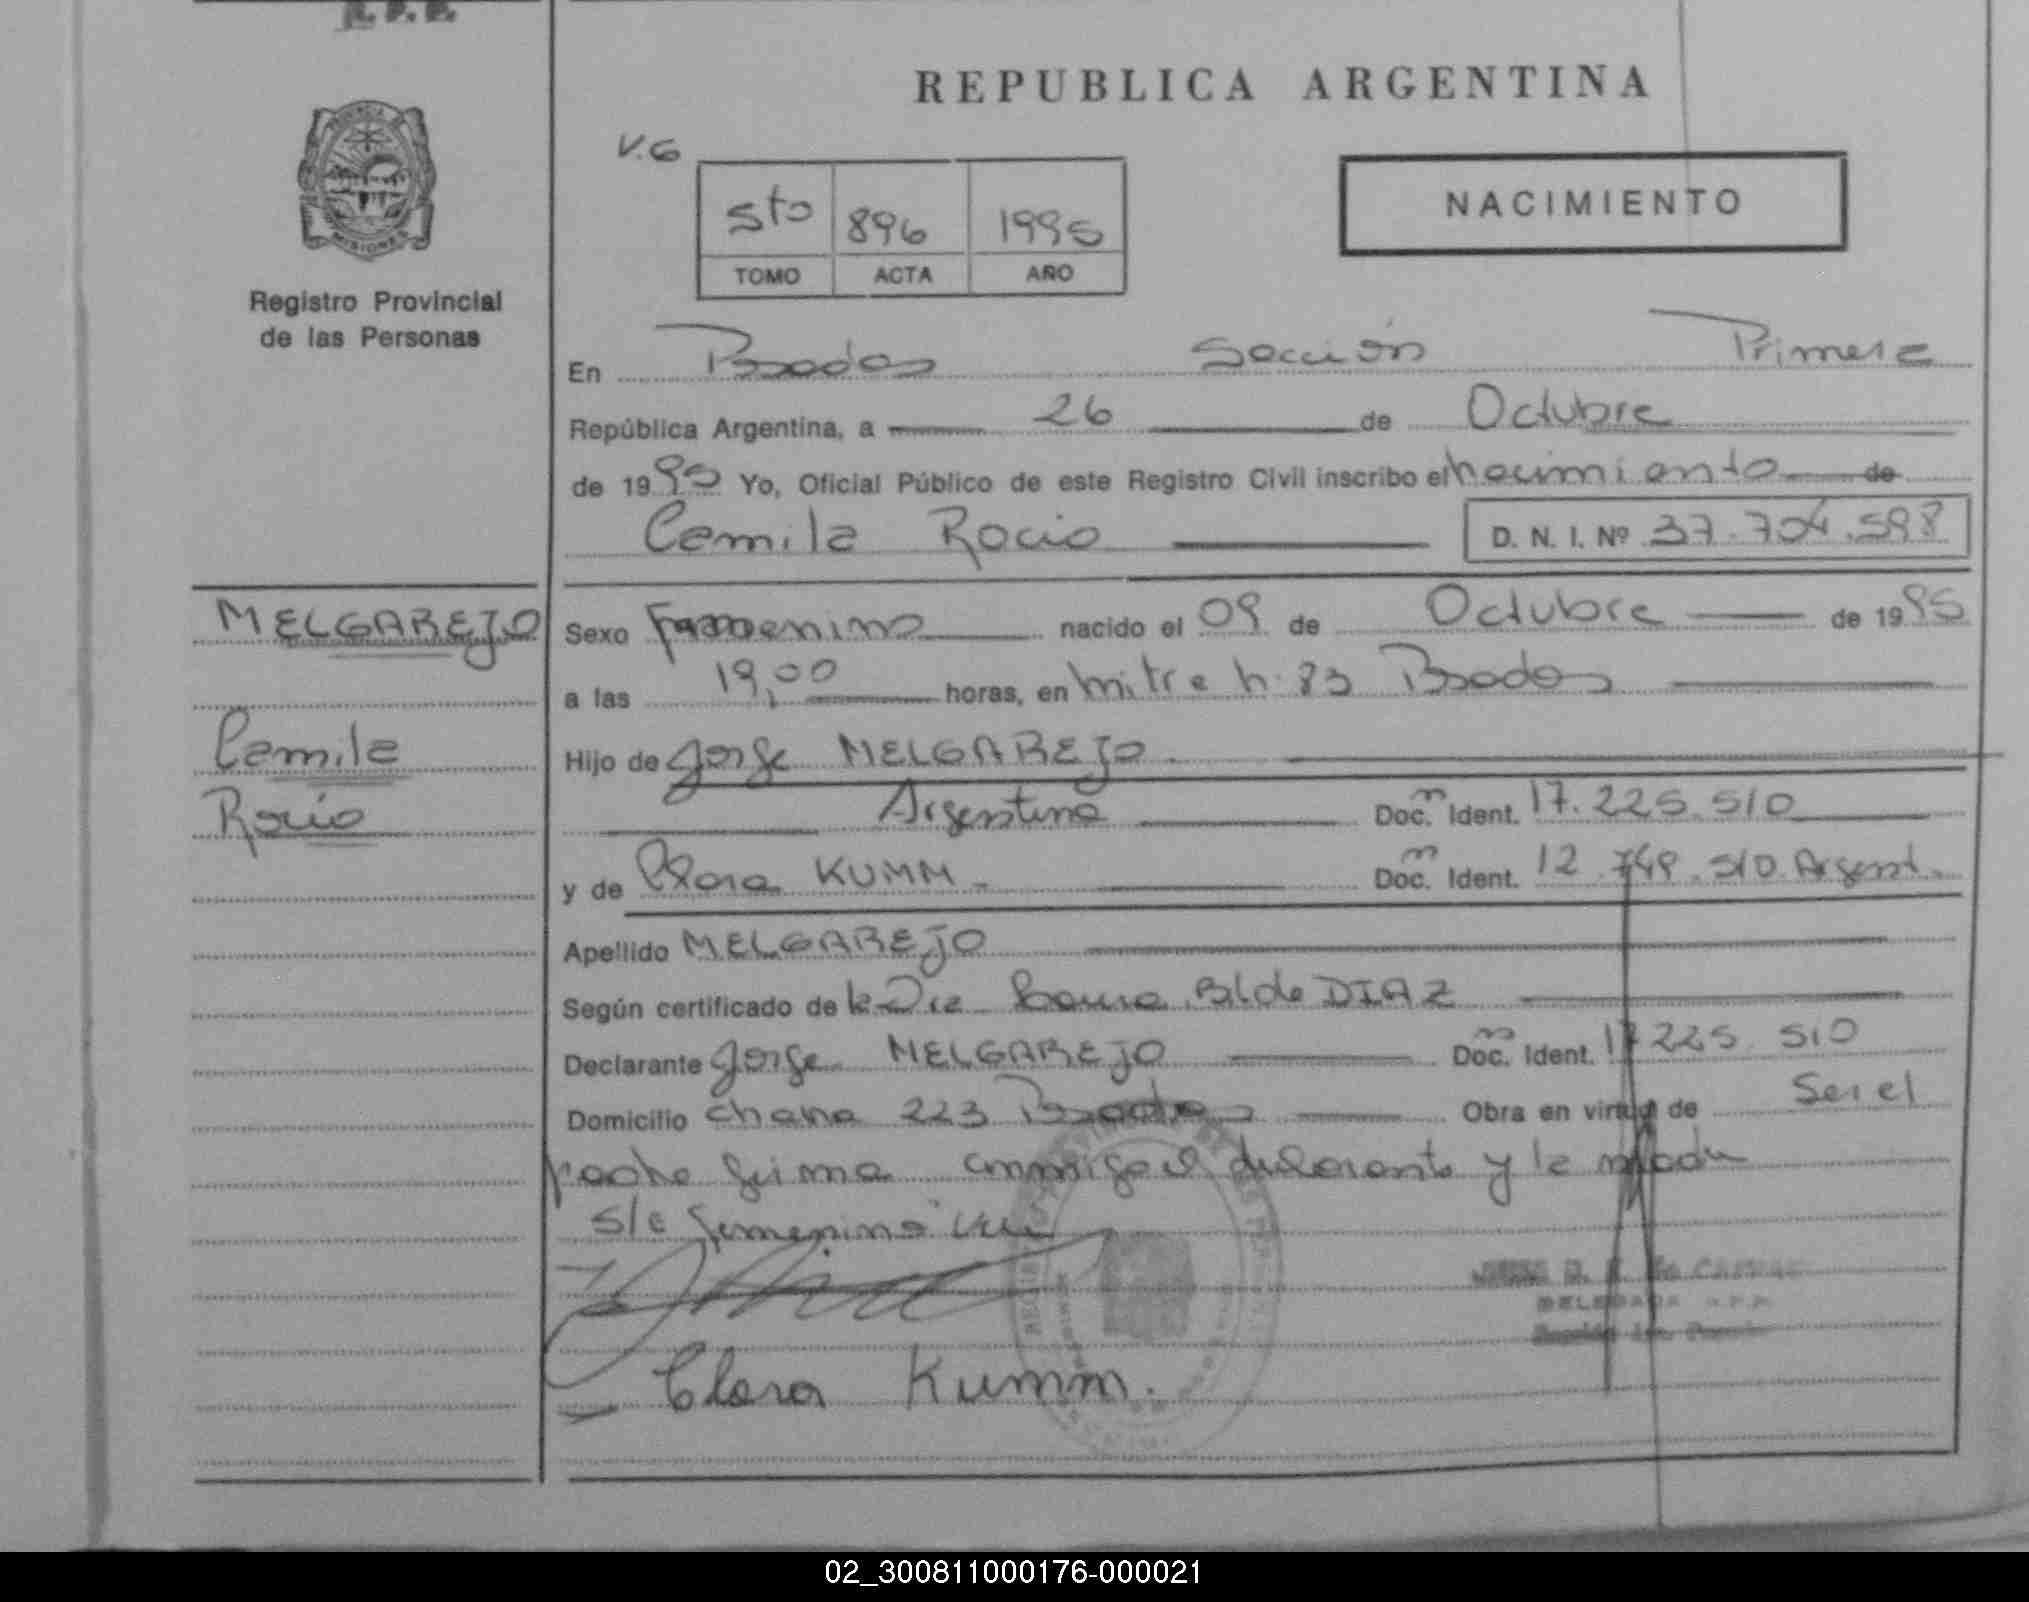 R. P. P.
REPUBLICA ARGENTINA
V.G
5to 896 1995
TOMO ACTA AÑO
NACIMIENTO
PROVINCIA
MISIONES
Registro Provincial
de las Personas
En Posadas Sección Primera
República Argentina, a 26 de Octubre
de 1995 Yo, Oficial Público de este Registro Civil inscribo el nacimiento de
Camila Rocio D. N. I. Nº 37.704.598
MELGAREJO
Camila
Rocío
Sexo Femenino nacido el 09 de Octubre de 1995
a las 19,00 horas, en mitre n. 83 Posadas
Hijo de Jorge MELGAREJO
Argentino Docm. Ident. 17.225.510
y de Clara KUMM Docm. Ident. 12.749.510 Argent.
Apellido MELGAREJO
Según certificado de la Dra Laura B. de DIAZ
Declarante Jorge MELGAREJO Docm. Ident. 17 225 510
Domicilio chana 223 Posadas Obra en virtud de Ser el
padre firma conmigo el declarante y la madre
s/e femenino vale
Clara Kumm.
DELEGADA R.P.P.
Sección 1ra. Posadas
02_300811000176-000021